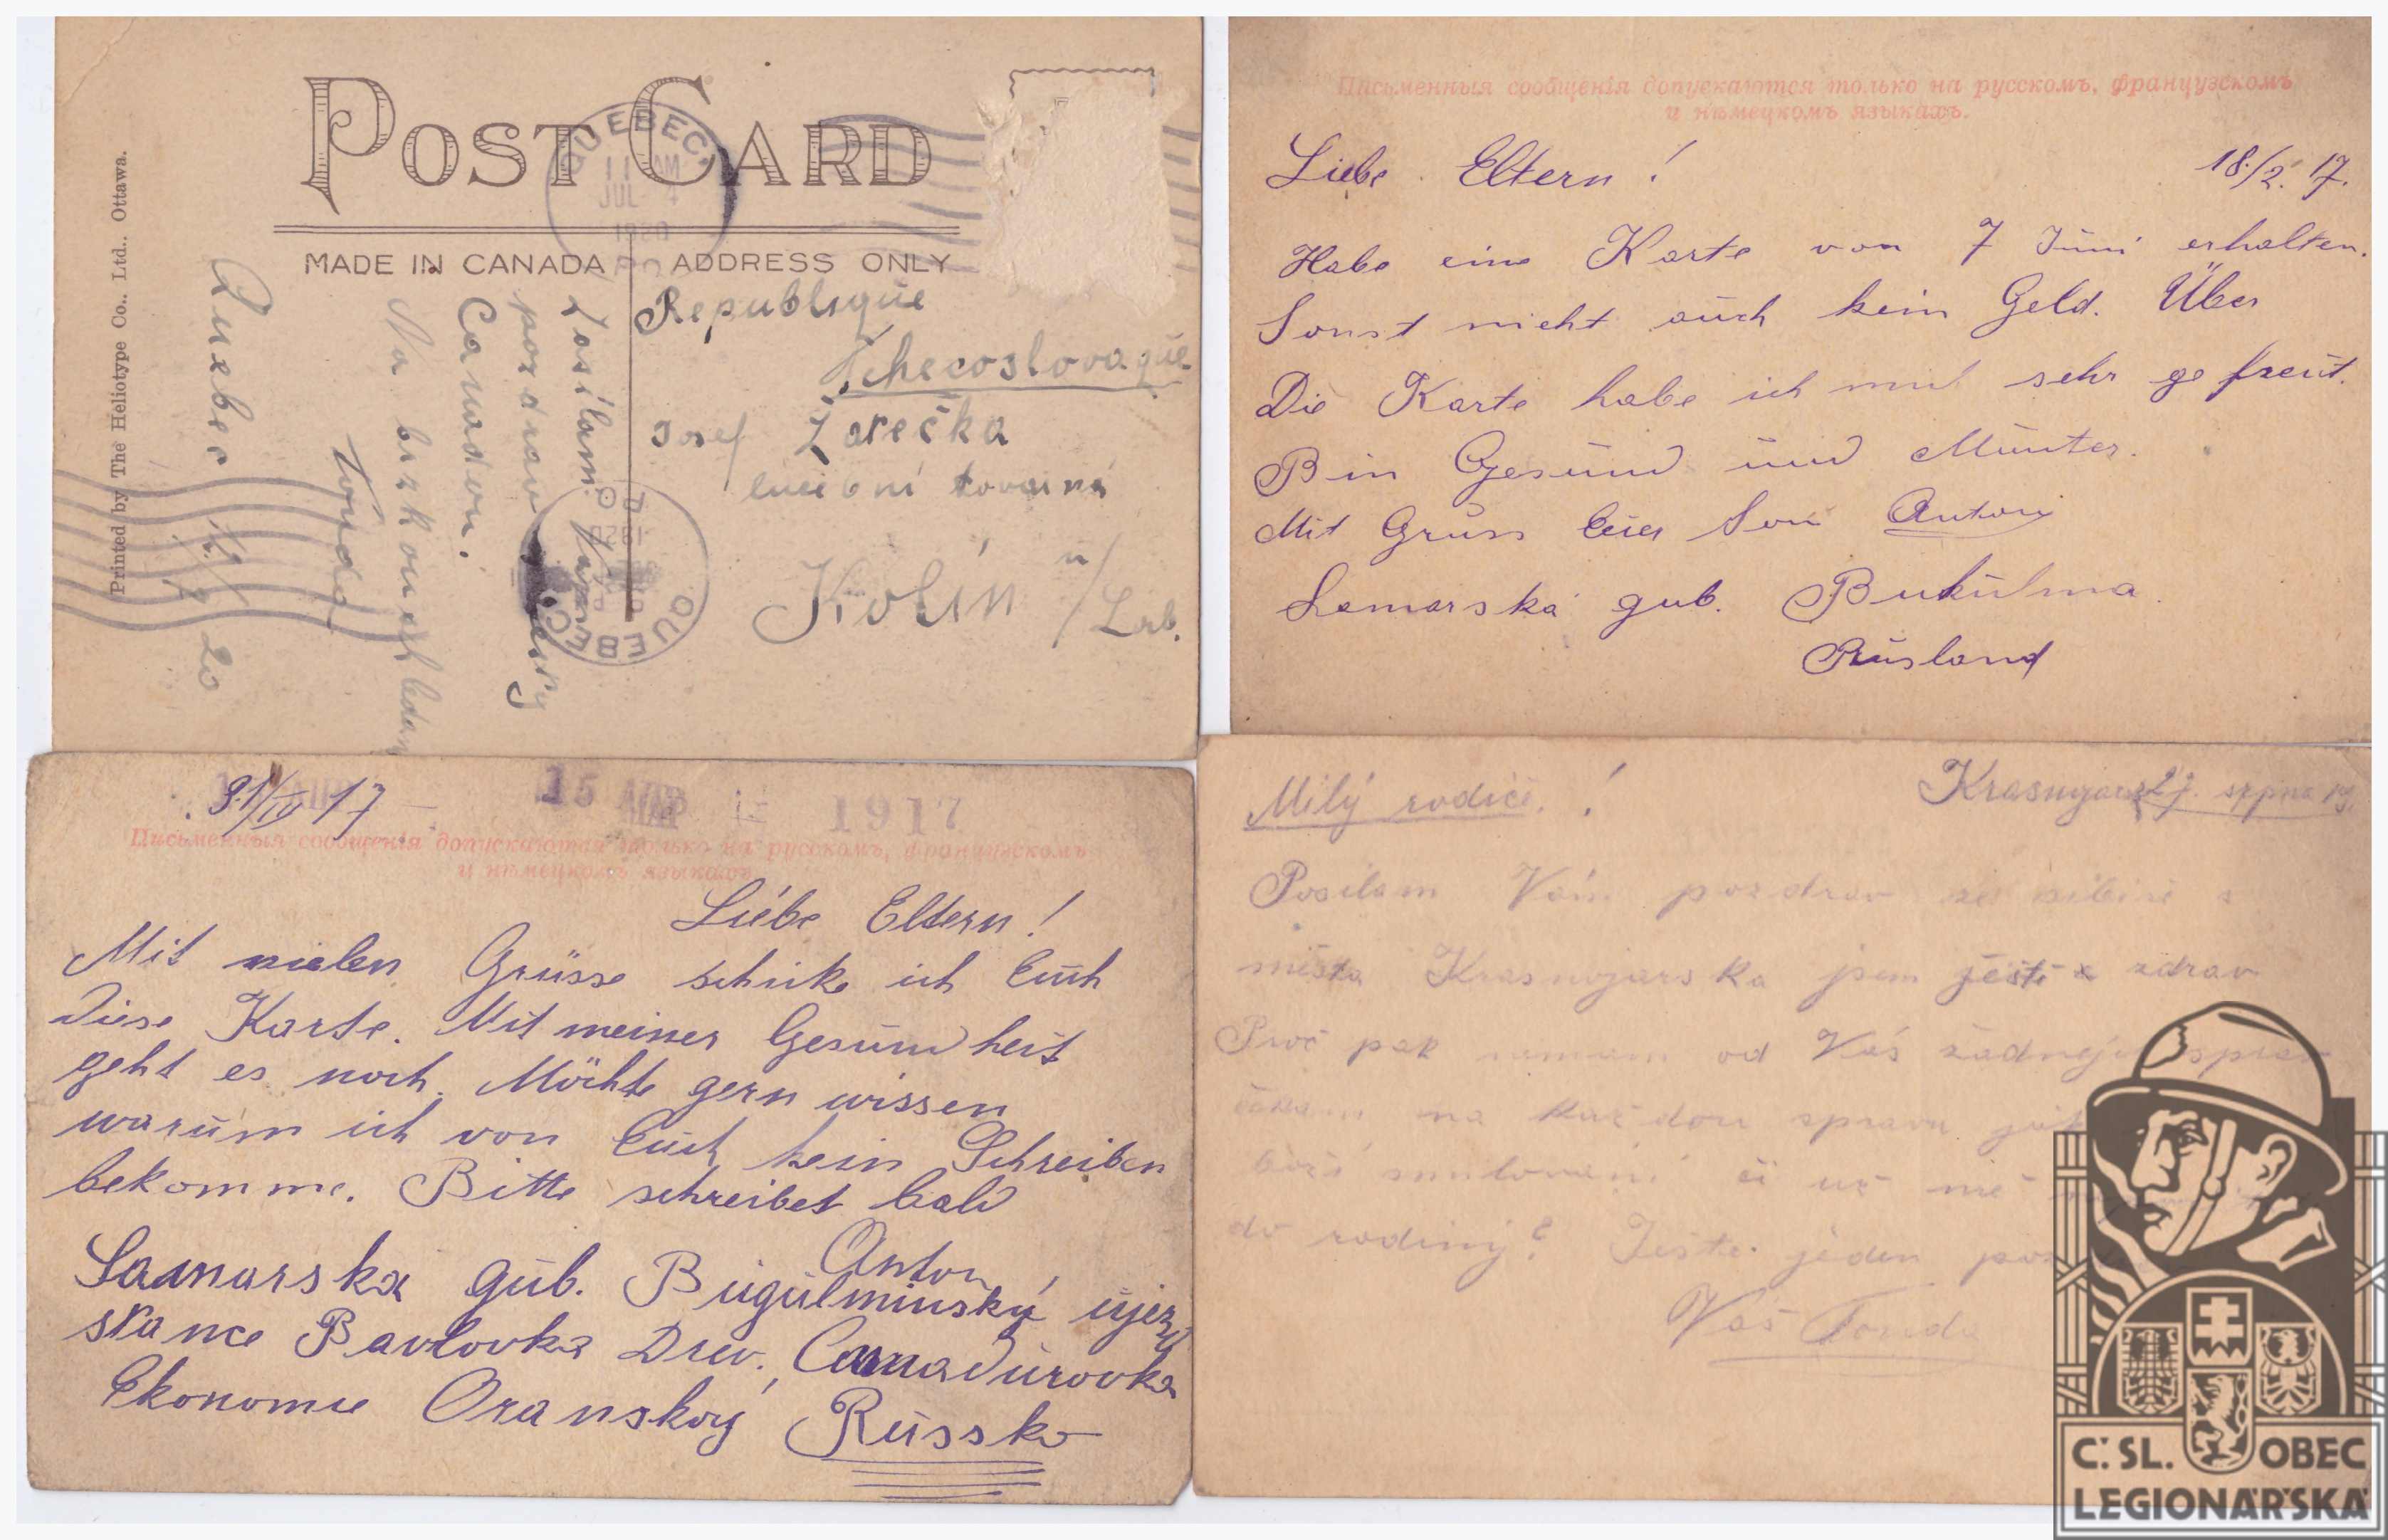 POST CARD
MADE IN CANADA
ADDRESS ONLY
Printed by The Heliotype Co., Ltd., Ottawa.
QUEBEC
11 AM
JUL 4
1920
Republique
Tchecoslovaque
Josef Zárečka
továrna
Kolín n/Lab.
Zasílám Vám
pozdrav
Canadou.
Na brzkou
Tonda
Quebec 20
QUEBEC
Письменныя сообщенія допускаются только на русскомъ, французскомъ
и нѣмецкомъ языкахъ.
Liebe Eltern! 18./2. 17.
Habe eine Karte von 7 Jŭni erhalten.
Sonst nicht aŭch kein Geld. Über
Die Karte habe ich mich sehr gefreŭt.
Bin Gesŭnd ŭnd Mŭnter.
Mit Grŭss Eŭer Son Anton
Samarska gub. Bukŭlma
Rŭsland
31/IV 17
15 1917
Письменныя сообщенія допускаются только на русскомъ, французскомъ
и нѣмецкомъ языкахъ.
Liebe Eltern!
Mit vielen Grüsse schicke ich Eŭch
Diese Karte. Mit meiner Gesŭndheit
geht es noch. Möchte gern wissen
warŭm ich von Eŭch kein Schreiben
bekomme. Bitte schreibet bald
Anton
Samarska gŭb. Bŭgŭlminský ŭjezd
stance Pavlovka Drev.
Ekonomie Oranskoy Rŭssko
Milý rodiče! Krasnojarsk 27. srpna 19.
Posílam Vám pozdrav ze sibiře z
města Krasnojarska jsem ještě zdrav
Proč pak nemám od Vás žádnej
čekám na každou spravu
boží smilování či už mě
do rodiny? Ještě jeden
Váš Tonda
Č. SL. OBEC
LEGIONÁŘSKÁ